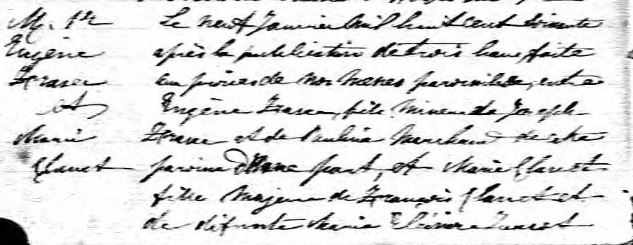 M. 1re Le neuf Janvier mil huit cent soixante
Eugène après la publication de trois bans faite
Fraser au prônes de nos messes paroissiales, entre
et Eugène Fraser, fils mineur de Joseph
Marie Fraser et de Paulina Marchand de cette
Clavet paroisse d'une part, et Marie Clavet
fille majeure de François Clavet et
de défunte Marie Eléonore